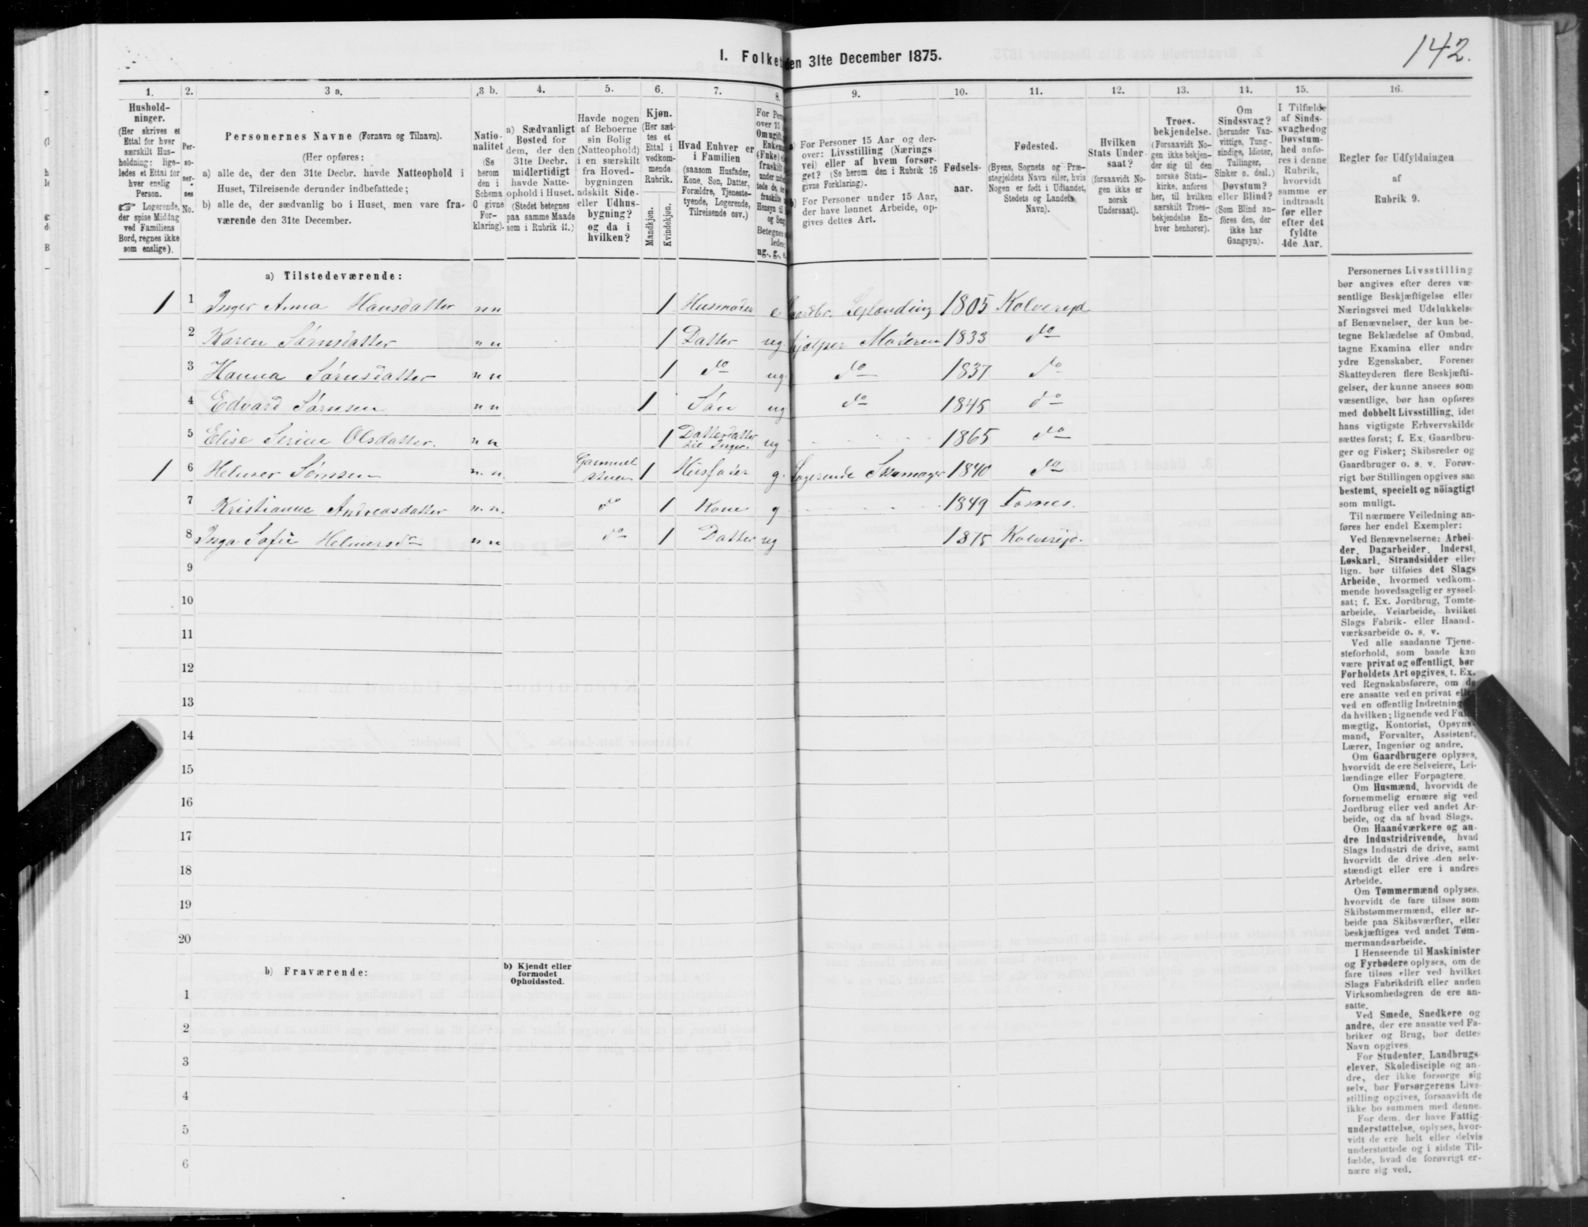 142.
I. Folke
den 31te December 1875.
1. 2. 3 a. 3 b. 4. 5. 6. 7. 8. 9. 10. 11. 12. 13. 14. 15. 16.
Hushold-
ninger.
(Her skrives et
Ettal for hver
særskilt Hus-
holdning; lige-
ledes et Ettal for
hver enslig
Person.
☞ Logerende,
der spise Middag
ved Familiens
Bord, regnes ikke
som enslige).
Per-
so-
ner-
nes
No.
Personernes Navne (Fornavn og Tilnavn).
(Her opføres:
a) alle de, der den 31te Decbr. havde Natteophold i
Huset, Tilreisende derunder indbefattede;
b) alle de, der sædvanlig bo i Huset, men vare fra-
værende den 31te December.
Natio-
nalitet
(Se
herom
den i
Schema
C givne
For-
klaring).
a) Sædvanligt
Bosted for
dem, der den
31te Decbr.
midlertidigt
havde Natte-
ophold i Huset.
(Stedet betegnes
paa samme Maade
som i Rubrik 11.)
Havde nogen
af Beboerne
sin Bolig
(Natteophold)
i en særskilt
fra Hoved-
bygningen
adskilt Side-
eller Udhus-
bygning?
og da i
hvilken?
Kjøn.
(Her sæt-
tes et
Ettal i
vedkom-
mende
Rubrik.
Mandkjøn.
Kvindekjøn.
Hvad Enhver er
i Familien
(saasom Husfader,
Kone, Søn, Datter,
Forældre, Tjeneste-
tyende, Logerende,
Tilreisende osv.)
For Personer 15 Aar og der-
over: Livsstilling (Nærings
vei) eller af hvem forsør-
get? (Se herom den i Rubrik 16
givne Forklaring).
For Personer under 15 Aar,
der have lønnet Arbeide, op-
gives dettes Art.
Fødsels-
aar.
Fødested.
(Byens, Sognets og Præ-
stegjeldets Navn eller, hvis
Nogen er født i Udlandet,
Stedets og Landets
Navn).
Hvilken
Stats Under-
saat?
(forsaavidt No-
gen ikke er
norsk
Undersaat).
Troes-
bekjendelse.
(Forsaavidt No-
gen ikke bekjen-
der sig til den
norske Stats-
kirke, anføres
her, til hvilken
særskilt Troes-
bekjendelse En-
hver henhører).
Om
Sindssvag?
(herunder Van-
vittige, Tung-
sindige, Idioter,
Tullinger,
Sinker o. desl.)
Døvstum?
eller Blind?
(Som Blind an-
føres den, der
ikke har
Gangsyn).
I Tilfælde
af Sinds-
svaghed og
Døvstum-
hed anfø-
res i denne
Rubrik,
hvorvidt
samme er
indtraadt
før eller
efter det
fyldte
4de Aar.
Regler for Udfyldningen
af
Rubrik 9.
a) Tilstedeværende:
1 1 Inger Anna Hansdatter nn 1 Husmoder e Føderaad 1805 Kolvereid
2 Karen Sørnsdatter nn 1 Datter ug hjælper Moderen 1833 do
3 Hanna Sørnsdatter nn 1 do ug do 1837 do
4 Edvard Sørnsen nn 1 Søn ug do 1845 do
5 Elise Serine Olsdatter. nn 1 Datterdatter til Inger ug 1865 do
1 6 Helmer Sørnsen n.n. Gammel stuen 1 Husfader g. Logerende Skomager 1840 do
7 Kristianne Andreasdatter n.n. do 1 Kone g 1849 Fosnes.
8 Inga Sofie Helmersdr nn do 1 Datter ug 1875 Kolvereid.
9
10
11
12
13
14
15
16
17
18
19
20
b) Fraværende:
b) Kjendt eller
formodet
Opholdssted.
1
2
3
4
5
6
Personernes Livsstilling
bør angives efter deres væ-
sentlige Beskjæftigelse eller
Næringsvei med Udelukkelse
af Benævnelser, der kun be-
tegne Beklædelse af Ombud,
tagne Examina eller andre
ydre Egenskaber. Forener
Skatteyderen flere Beskjæfti-
gelser, der kunne ansees som
væsentlige, bør han opføres
med dobbelt Livsstilling, idet
hans vigtigste Erhvervskilde
sættes først; f. Ex. Gaardbru-
ger og Fisker; Skibsreder og
Gaardbruger o. s. v. Forøv-
rigt bør Stillingen opgives saa
bestemt, specielt og nøiagtigt
som muligt.
Til nærmere Veiledning an-
føres her endel Exempler:
Ved Benævnelserne: Arbei-
der, Dagarbeider, Inderst,
Løskarl, Strandsidder eller
lign. bør tilføies det Slags
Arbeide, hvormed vedkom-
mende hovedsagelig er syssel-
sat; f. Ex. Jordbrug, Tomte-
arbeide, Veiarbeide, hvilket
Slags Fabrik- eller Haand-
værksarbeide o. s. v.
Ved alle saadanne Tjene-
steforhold, som baade kan
være privat og offentligt, bør
Forholdets Art opgives, f. Ex.
ved Regnskabsførere, om de
ere ansatte ved en privat eller
ved en offentlig Indretning og
da hvilken; lignende ved Fuld-
mægtig, Kontorist, Opsyns-
mand, Forvalter, Assistent,
Lærer, Ingeniør og andre.
Om Gaardbrugere oplyses,
hvorvidt de ere Selveiere, Lei-
lændinge eller Forpagtere.
Om Husmænd, hvorvidt de
fornemmelig ernære sig ved
Jordbrug eller ved andet Ar-
beide, og da af hvad Slags.
Om Haandværkere og an-
dre Industridrivende, hvad
Slags Industri de drive, samt
hvorvidt de drive den selv-
stændigt eller ere i andres
Arbeide.
Om Tømmermænd oplyses,
hvorvidt de fare tilsøs som
Skibstømmermænd, eller ar-
beide paa Skibsværfter, eller
beskjæftiges ved andet Tøm-
mermandsarbeide.
I Henseende til Maskinister
og Fyrbødere oplyses, om de
fare tilsøs eller ved hvilket
Slags Fabrikdrift eller anden
Virksomhedsgren de ere an-
satte.
Ved Smede, Snedkere og
andre, der ere ansatte ved Fa-
briker og Brug, bør dettes
Navn opgives.
For Studenter, Landbrugs-
elever, Skoledisciple og an-
dre, der ikke forsørge sig
selv, bør Forsørgerens Livs-
stilling opgives, forsaavidt de
ikke bo sammen med denne.
For dem, der have Fattig-
understøttelse, oplyses, hvor-
vidt de ere helt eller delvis
understøttede og i sidste Til-
fælde, hvad de forøvrigt er-
nære sig ved.